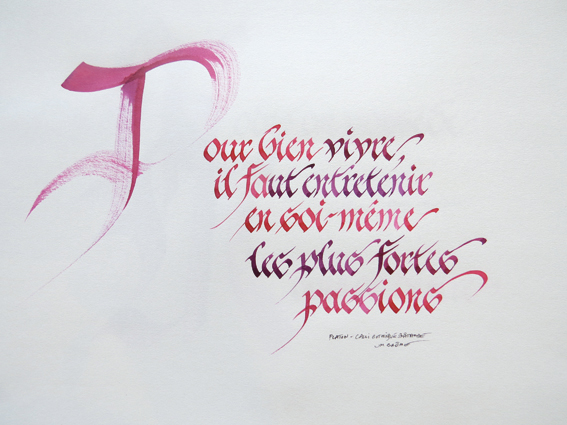 Pour bien vivre,
il faut entretenir
en soi-même
les plus fortes
passions
PLATON -